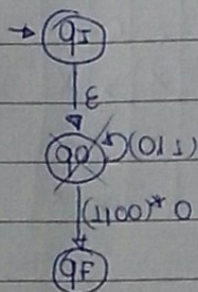 qI
ε
q0 (0|1)
(1100)* 0
qF